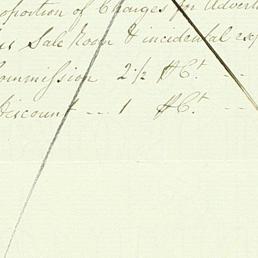 oportion of Charges for Advert
Sale Room & incidental exp
ommission 2 1/2 ⅌ Ct. - -
Discount - - - 1 ⅌ Ct. - -